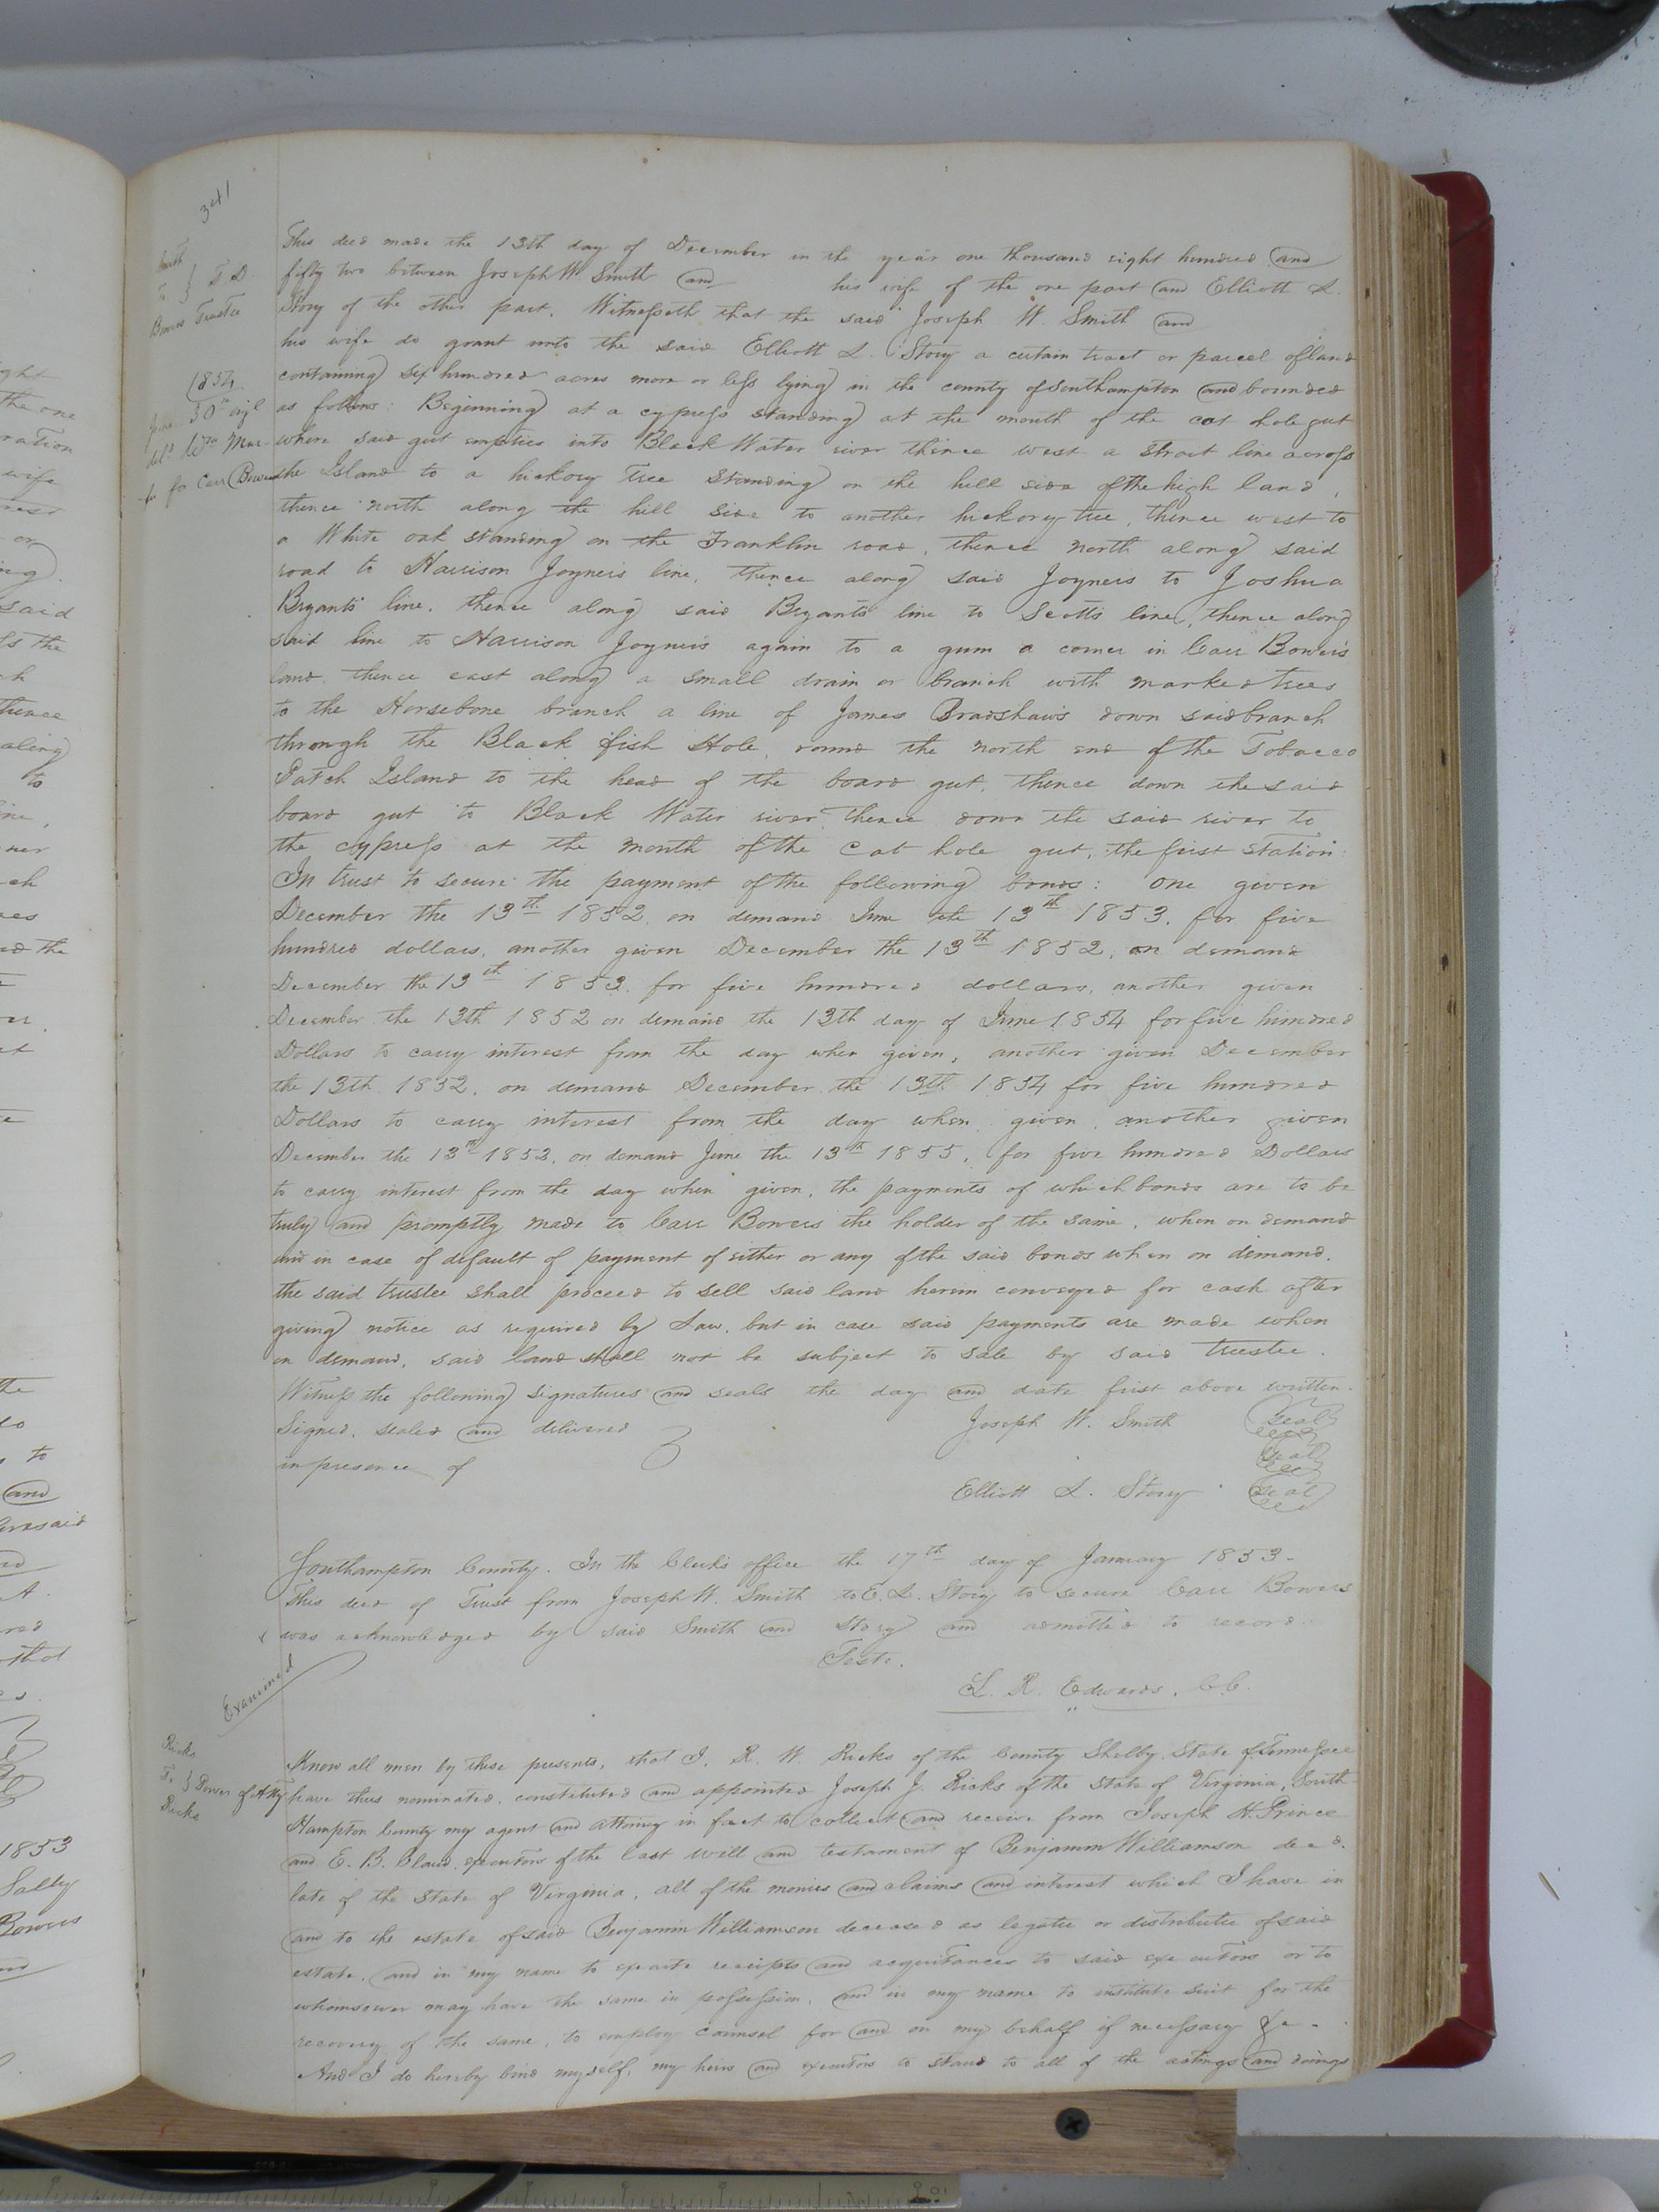 341
Smith
To } T. D.
Bowers Trustee
This deed made the 13th day of December in the year one thousand eight hundred and
fifty two between Joseph W. Smith and his wife of the one part and Elliott L.
Story of the other part. Witnesseth that the said Joseph W. Smith and
his wife do grant unto the said Elliott L. Story a certain tract or parcel of land
containing six hundred acres more or less lying in the county of Southampton and bounded
as follows: Beginning at a cypress standing at the mouth of the cat hole gut
where said gut empties into Black Water river thence west a strait line across
the Island to a hickory tree standing on the hill side of the high land,
thence north along the hill side to another hickory tree, thence west to
a White oak standing on the Franklin road, thence north along said
road to Harrison Joyners line, thence along said Joyners to Joshua
Bryants line, thence along said Bryants line to Scotts line, thence along
said line to Harrison Joyners again to a gum a corner in Carr Bowers
land, thence east along a small drain or branch with marked trees
to the Horsebone branch a line of James Bradshaws down said branch
through the Black fish Hole, round the north end of the Tobacco
Patch Island to the head of the board gut, thence down the said
board gut to Black Water river thence down the said river to
the cypress at the mouth of the cat hole gut, the first station.
In trust to secure the payment of the following bonds: One given
December the 13th 1852 on demand June the 13th 1853, for five
hundred dollars, another given December the 13th 1852, on demand
December the 13th 1853 for five hundred dollars, another given
December the 13th 1852 on demand the 13th day of June 1854 for five hundred
Dollars to carry interest from the day when given, another given December
the 13th 1852, on demand December the 13th 1854 for five hundred
Dollars to carry interest from the day when given, another given
December the 13th 1852, on demand June the 13th 1855, for five hundred Dollars
to carry interest from the day when given, the payments of which bonds are to be
truly and promptly made to Carr Bowers the holder of the same, when on demand
and in case of default of payment of either or any of the said bonds when on demand.
the said trustee shall proceed to sell said land herein conveyed for cash after
giving notice as required by Law, but in case said payments are made when
on demand, said land shall not be subject to sale by said trustee.
Witness the following signatures and seals the day and date first above written.
Signed, sealed and delivered } Joseph W. Smith seal
in presence of seal
Elliott L. Story seal
1854
30th
for Carr Bowers
Southampton County. In the Clerks office the 17th day of January 1853-
This deed of Trust from Joseph W. Smith to E. L. Story to secure Carr Bowers
was acknowledged by said Smith and Story and admitted to record.
Teste.
L. R. Edwards, C.C.
Examined
Ricks
To } Power of Atty
Ricks
Know all men by these presents, that I, R. W. Ricks of the County Shelby, State of Tennessee
have thus nominated, constituted and appointed Joseph J. Ricks of the State of Virginia, South
Hampton County my agent and attorney in fact to collect and receive from Joseph H. Prince
and E. B. Claud, executors of the last will and testament of Benjamin Williamson decd.
late of the State of Virginia, all of the monies and claims and interest which I have in
and to the estate of said Benjamin Williamson deceased as legatee or distributee of said
estate, and in my name to execute receipts and acquittances to said executors or to
whomsoever may have the same in possession, and in my name to institute suit for the
recovery of the same, to employ counsel for and on my behalf if necessary &c -
And I do hereby bind myself, my heirs and executors to stand to all of the actings and doings